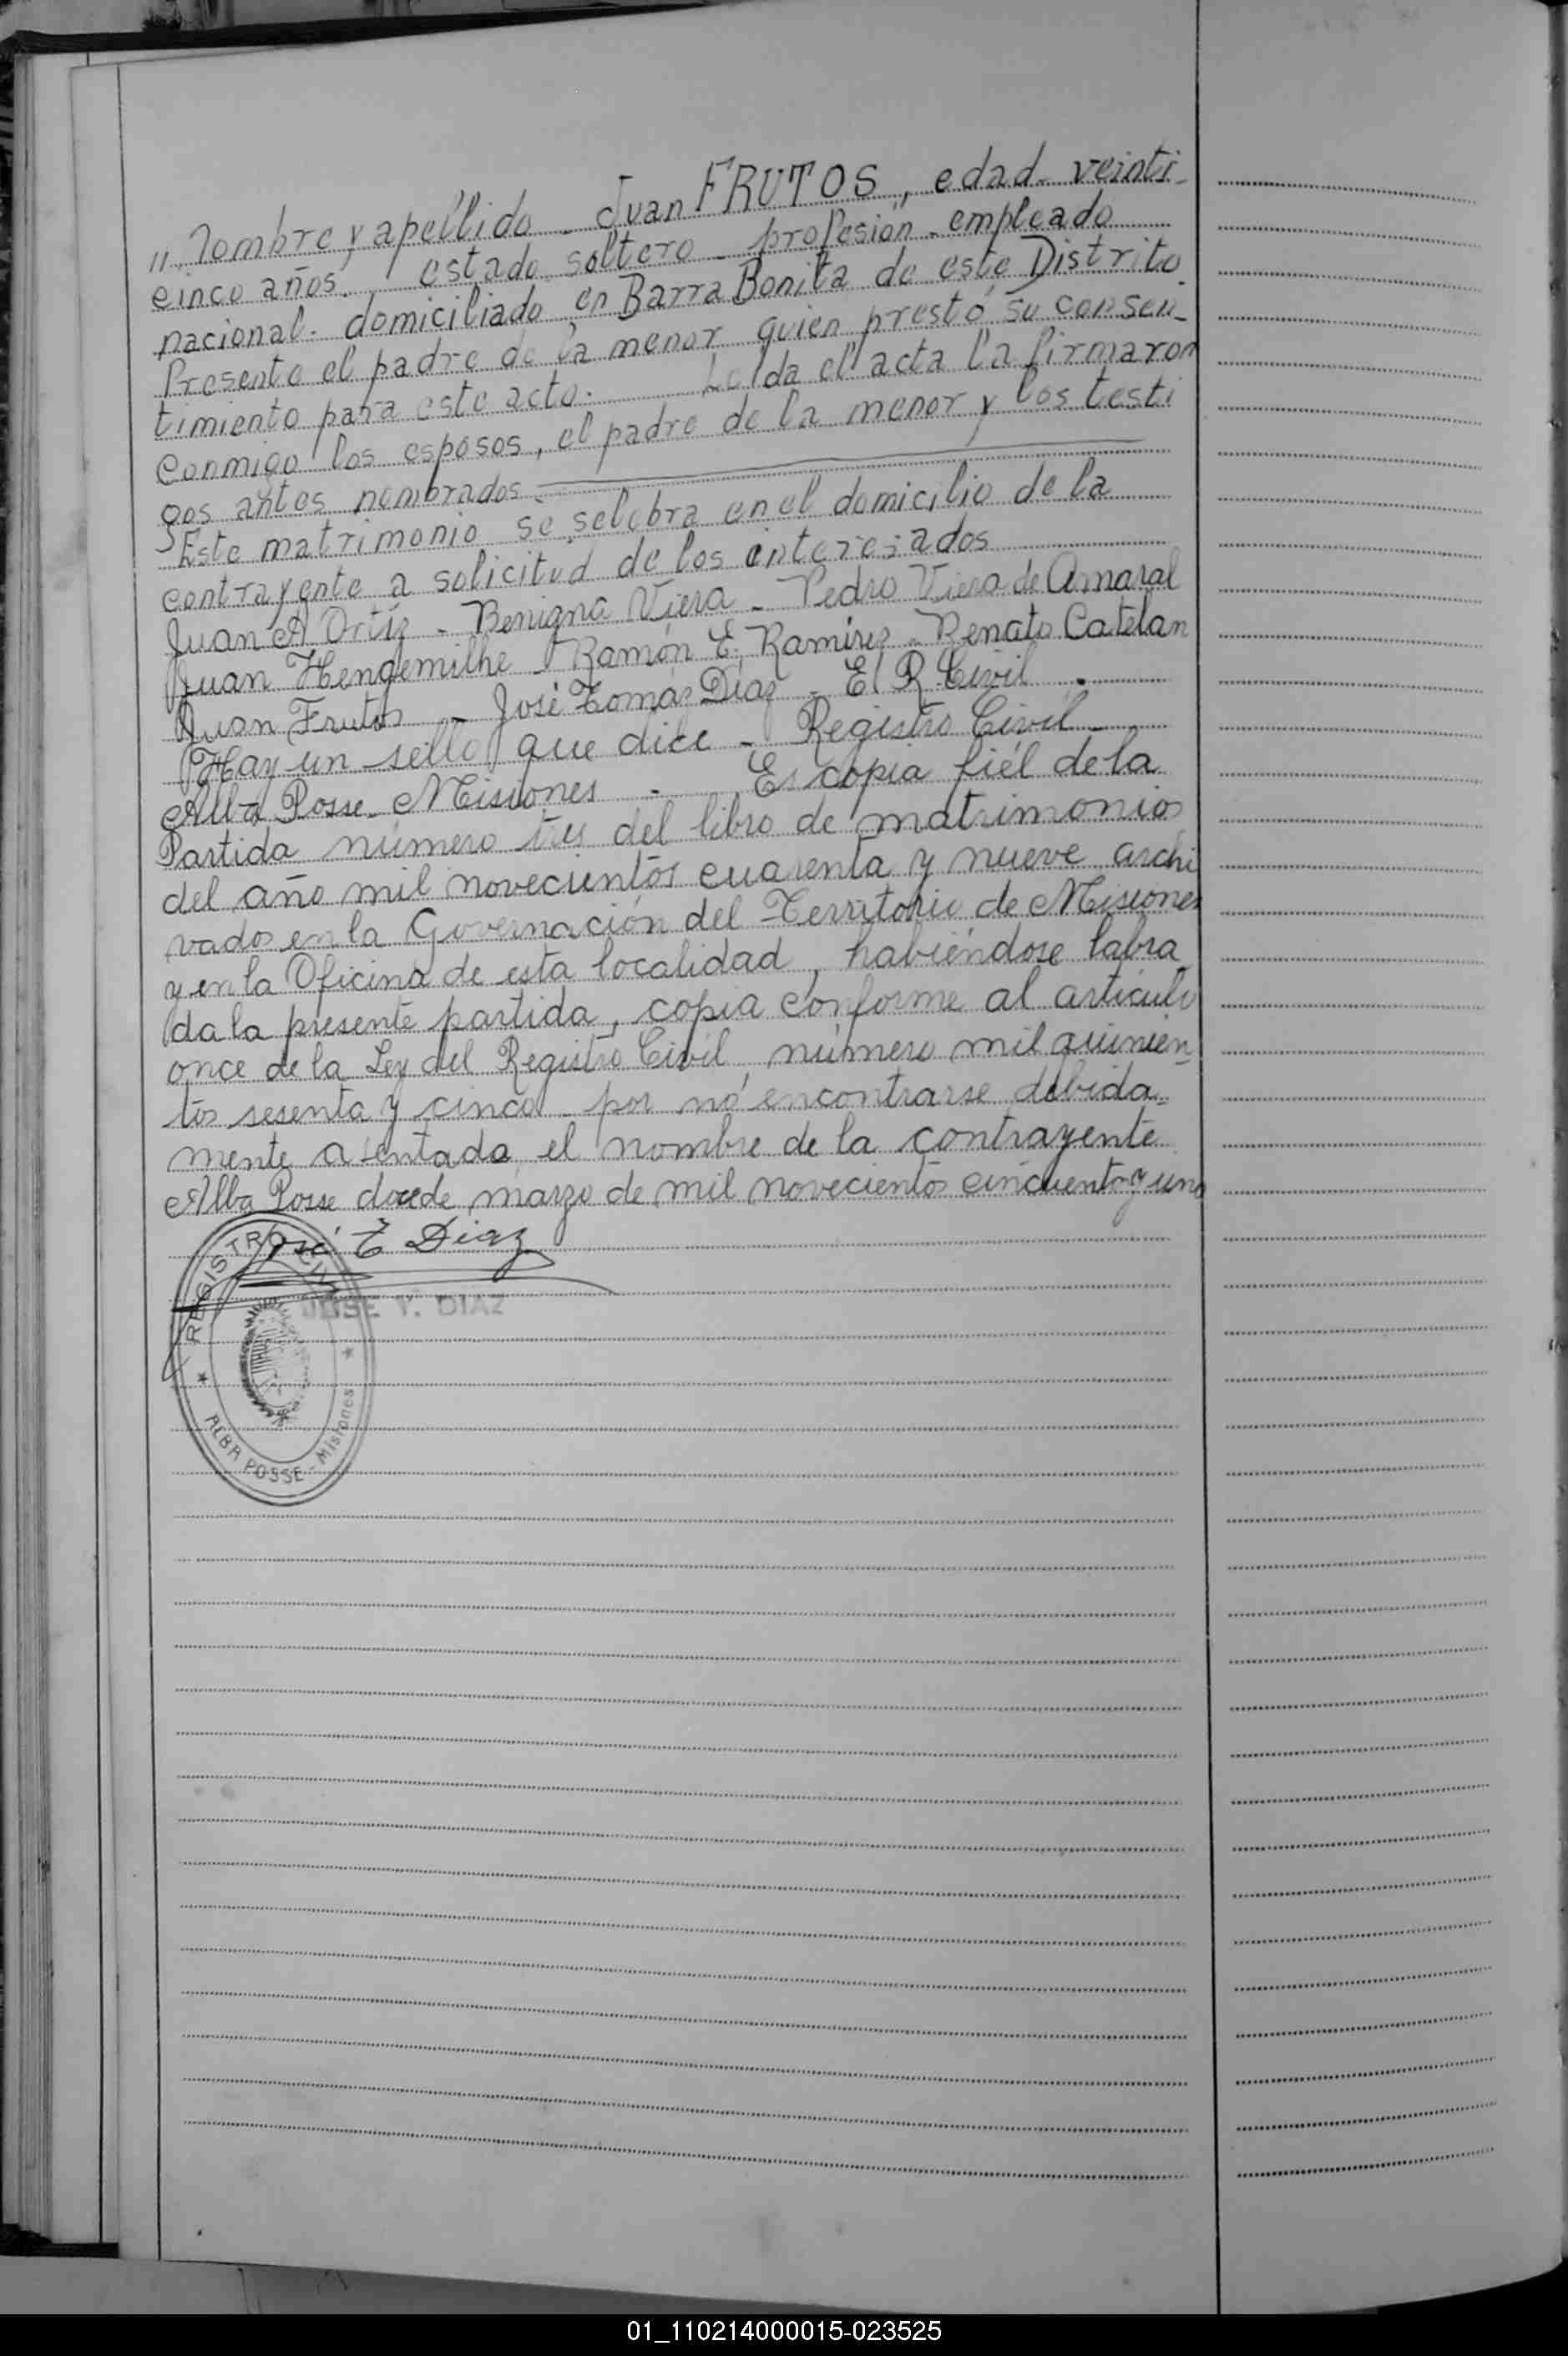 " Nombre y apellido - Juan FRUTOS, edad - veinti-
cinco años. estado soltero - profesión - empleado
nacional - domiciliado en Barra Bonita de este Distrito.
Presente el padre de la menor quien prestó su consen-
timiento para este acto. Leída el acta la firmaron
conmigo los esposos, el padre de la menor y los testi
gos antes nombrados.
Este matrimonio se selebra en el domicilio de la
contrayente a solicitud de los interesados
Juan A Ortíz - Benigna Viera - Pedro Viera de Amaral
Juan Hengemilhe - Ramón E. Ramírez - Renato Catelan
Juan Frutos - José Tomáz Díaz - E. R Civil.
Hay un sello que dice - Registro Civil -
Alba Posse - Misiones - Es copia fiél de la
Partida número tres del libro de matrimonios
del año mil novecientos cuarenta y nueve archi
vados en la Governación del Territorio de Misiones
y en la Oficina de esta localidad, habiéndose labra
da la presente partida, copia conforme al artículo
once de la Ley del Registro Civil, número mil quinien=
tos sesenta y cinco - por nó encontrarse debida=
mente asentado el nombre de la contrayente
Alba Posse doce de marzo de mil novecientos cincuenta y uno
José T Díaz
JOSE T. DIAZ
REGISTRO CIVIL
ALBA POSSE - Misiones
01_110214000015-023525